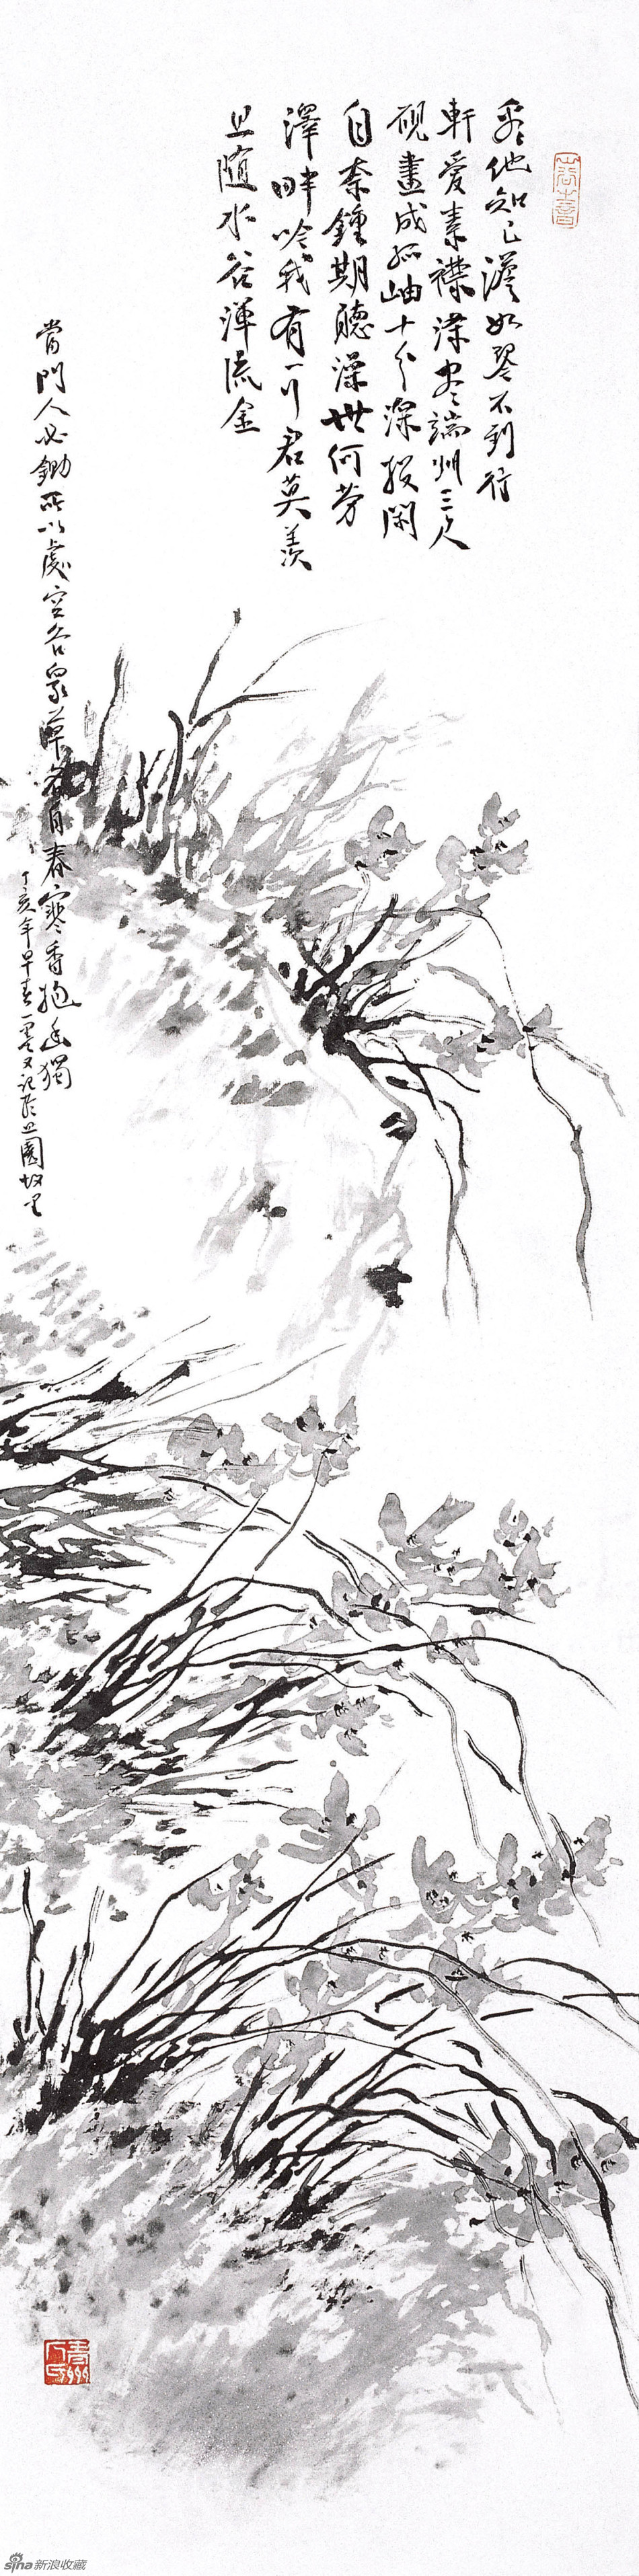 他知己如琴不到行
軒愛素襟染盡端州三尺
硯畫成孤岫十分深投閑
自奈鍾期聽世何勞
澤畔吟我有君莫羨
且隨水谷渾流金
當門人必鋤所以處空谷衆草各自春寒香抱幽獨
丁亥年早春一墨又記於且園故里
sina新浪收藏